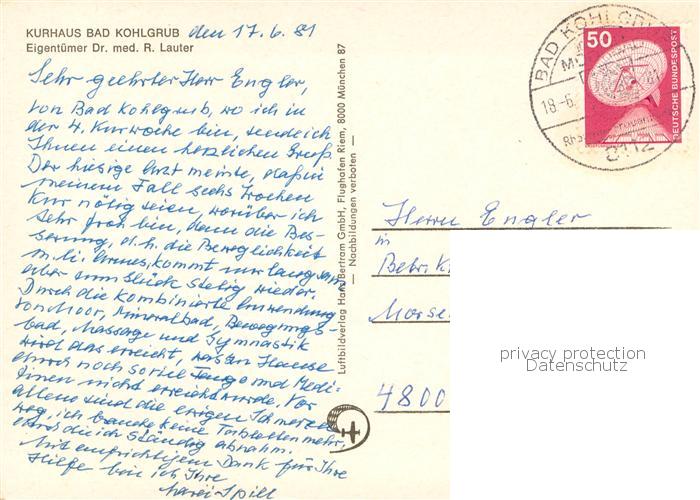 KURHAUS BAD KOHLGRUB den 17.6.81
Eigentümer Dr. med. R. Lauter
Sehr geehrter Herr Engler,
von Bad Kohlgrub, wo ich in
der 4. Kurwoche bin, sende ich
Ihnen einen herzlichen Gruß.
Der hiesige Arzt meinte, daß in
meinem Fall sechs Wochen
Kur nötig seien, worüber ich
sehr froh bin, denn die Bes-
serung, d.h. die Beweglichkeit
m. li. Armes, kommt nur langsam
aber zum Glück stetig wieder.
Durch die kombinierte Anwendung
von Moor, Mineralbad, Bewegungs-
bad, Massage und Gymnastik
wird das erreicht, was zu Hause
durch noch so viel Fango und Medi-
zinen nicht erreicht wurde. Vor
allem sind die ewigen Schmerzen
weg, ich brauche keine Tabletten mehr,
die ich ständig abnahm.
Mit aufrichtigem Dank für Ihre
Hilfe bin ich Ihre
Spill
Luftbildverlag Hans Bertram GmbH, Flughafen Riem, 8000 München 87
— Nachbildungen verboten —
BAD KOHLGRUB
18.-6.
8112
50
DEUTSCHE BUNDESPOST
Herrn Engler
in
Betr. K
Morse
4800
privacy protection
Datenschutz